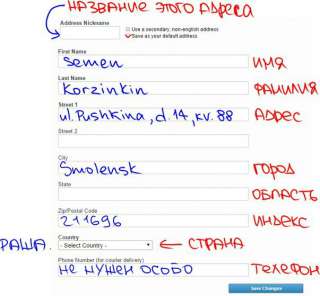 НАЗВАНИЕ ЭТОГО АДРЕСА
Address Nickname
Use a secondary, non-english address
Save as your default address
First Name
Semen
ИМЯ
Last Name
Korzinkin
ФАМИЛИЯ
Street 1
ul. Pushkina, d. 14, kv. 88
АДРЕС
Street 2
City
Smolensk
ГОРОД
State
ОБЛАСТЬ
Zip/Postal Code
211696
ИНДЕКС
Country
РАША.
- Select Country -
СТРАНА
Phone Number (for courier delivery)
НЕ НУЖЕН ОСОБО
ТЕЛЕФОН
Save Changes